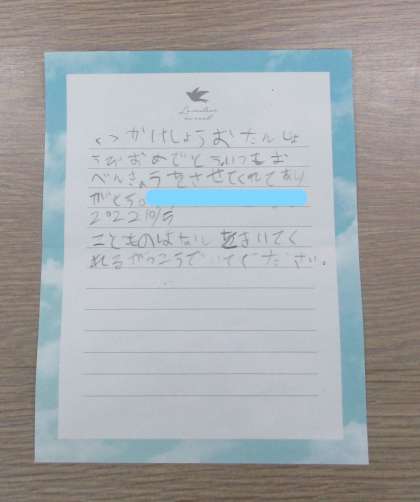 がけしょうおたんじょ
うびおめでとういつもお
べんきょうをさせてくれてあり
がとう。
2022 10/5
こどものはなしをきいてく
れるがっこうでいてください。